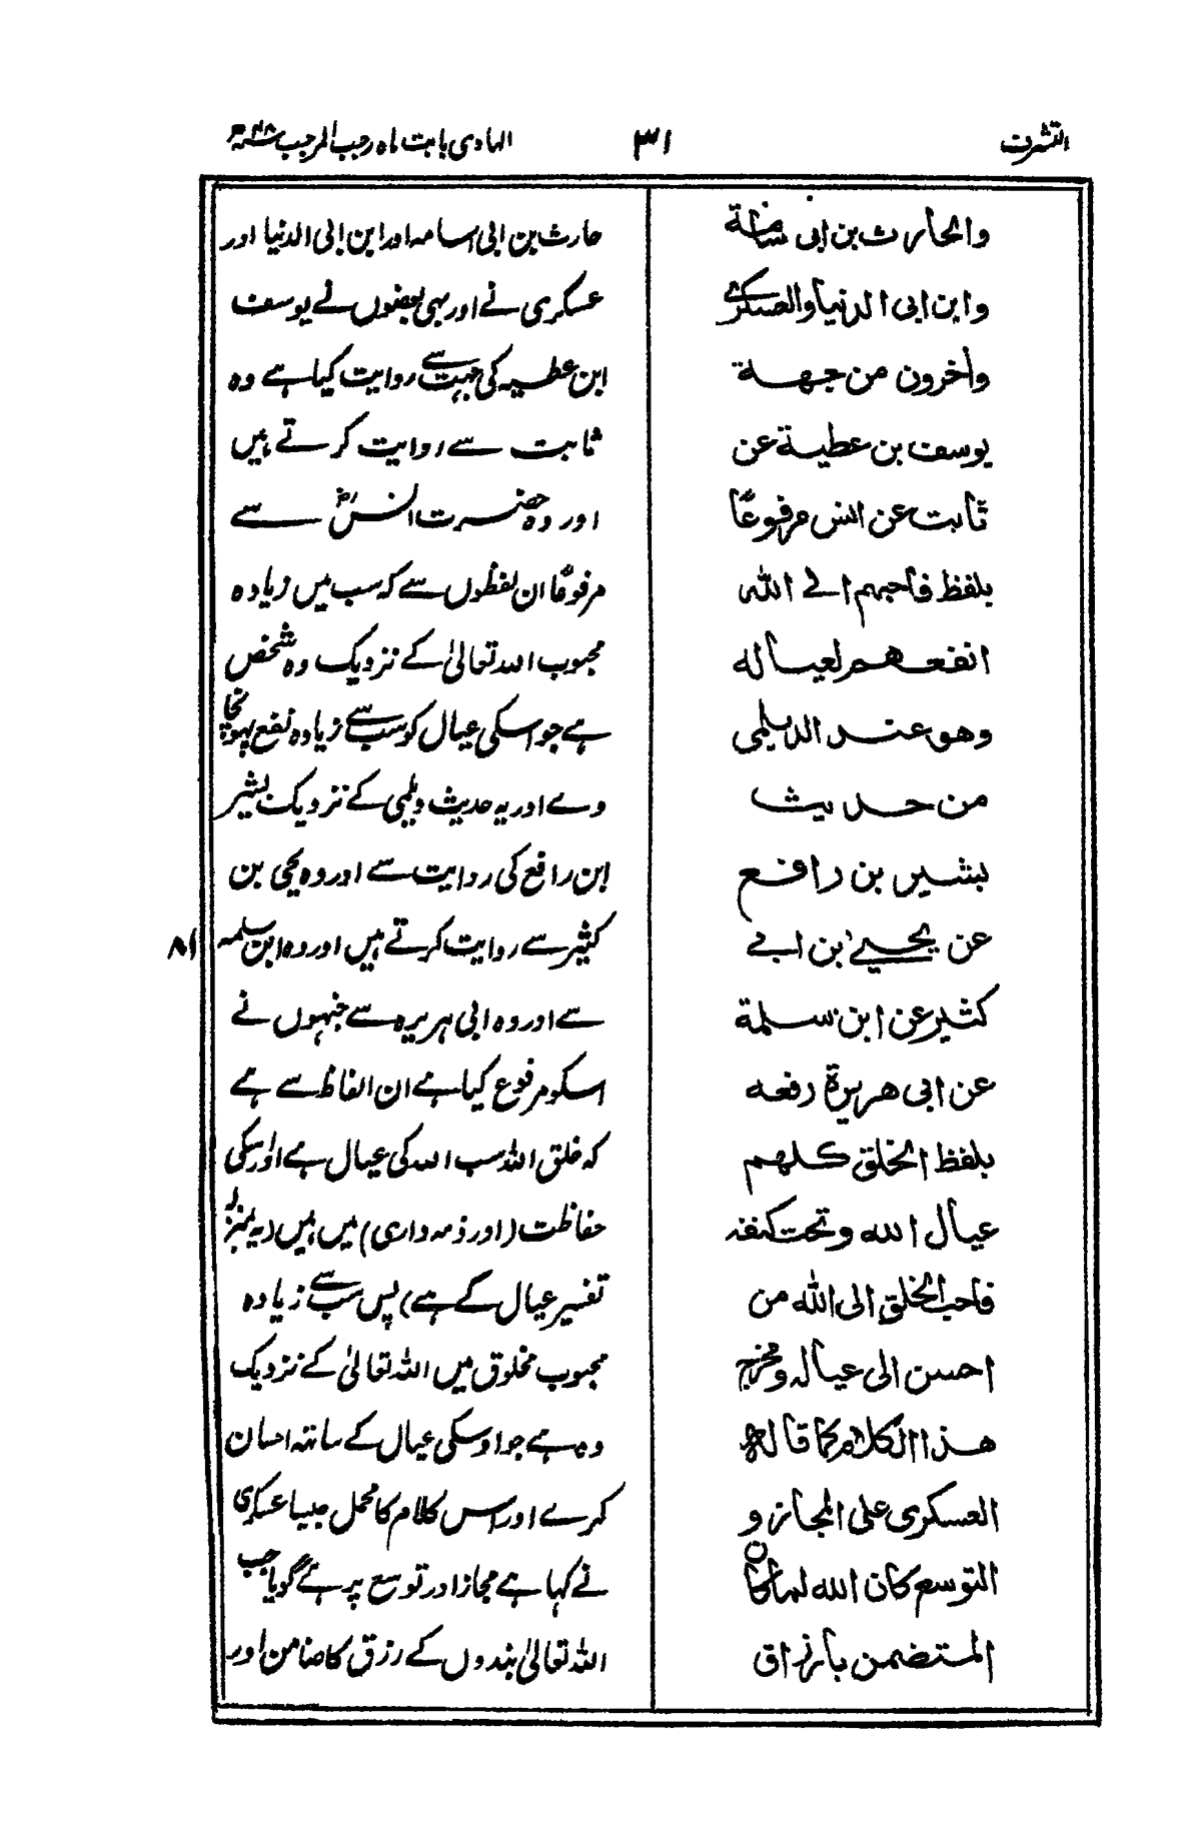 التشرف
۳۱
الہادی بابت ماہ رجب المرجب
والحارث بن ابی اسامة
وابن ابی الدنیا والعسکری
وأخرون من جهة
یوسف بن عطیة عن
ثابت عن انس مرفوعًا
بلفظ فاحبهم الی الله
انفعهم لعیاله
وهو عند الدیلمی
من حدیث
بشیر بن رافع
عن یحیی بن ابی
کثیر عن ابن سلمة
عن ابی هریرة رفعه
بلفظ الخلق کلهم
عیال الله وتحت کنفه
فاحب الخلق الی الله من
احسن الی عیاله ومخرج
هذا الکلام کما قاله
العسکری علی المجاز و
التوسع کان الله لما کان
المتضمن بارزاق
حارث بن ابی اسامہ اور ابن ابی الدنیا اور
عسکری نے اور بہی بعضوں نے یوسف
ابن عطیہ کی جہت سے روایت کیا ہے وہ
ثابت سے روایت کرتے ہیں
اور وہ حضرت انسؓ سے
مرفوعًا ان لفظوں سے کہ سب میں زیادہ
محبوب اللہ تعالیٰ کے نزدیک وہ شخص
ہے جو اسکی عیال کو سب سے زیادہ نفع پہونچا
وے اور یہ حدیث دیلمی کے نزدیک بشیر
ابن رافع کی روایت سے اور وہ یحیی بن
کثیر سے روایت کرتے ہیں اور وہ ابن سلمہ
۸۱
سے اور وہ ابی ہریرہ سے جنہوں نے
اسکو مرفوع کیا ہے ان الفاظ سے ہے
کہ خلق اللہ سب اللہ کی عیال ہے اور اسکی
حفاظت (اور ذمہ داری) میں ہیں (یہ بمنزلہ
تفسیر عیال کے ہے) پس سب سے زیادہ
محبوب مخلوق میں اللہ تعالیٰ کے نزدیک
وہ ہے جو اوسکی عیال کے ساتہہ احسان
کرے اور اس کلام کا محمل جیسا عسکری
نے کہا ہے مجاز اور توسع پر ہے گویا جب
اللہ تعالیٰ بندوں کے رزق کا ضامن اور